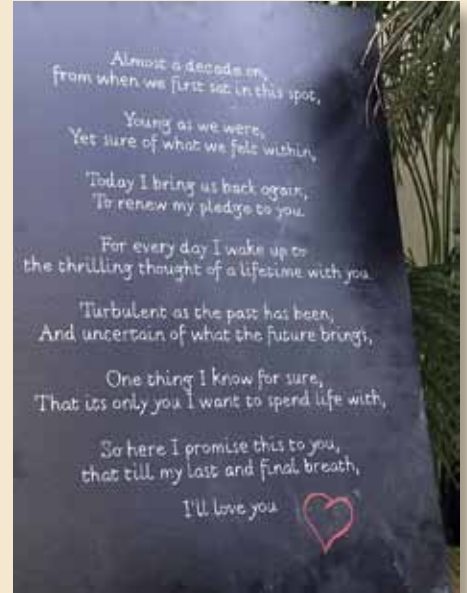 Almost a decade on,
from when we first sat in this spot,
Young as we were,
Yet sure of what we felt within,
Today I bring us back again,
To renew my pledge to you.
For every day I wake up to
the thrilling thought of a lifetime with you.
Turbulent as the past has been,
And uncertain of what the future brings,
One thing I know for sure,
That its only you I want to spend life with,
So here I promise this to you,
that till my last and final breath,
I'll love you